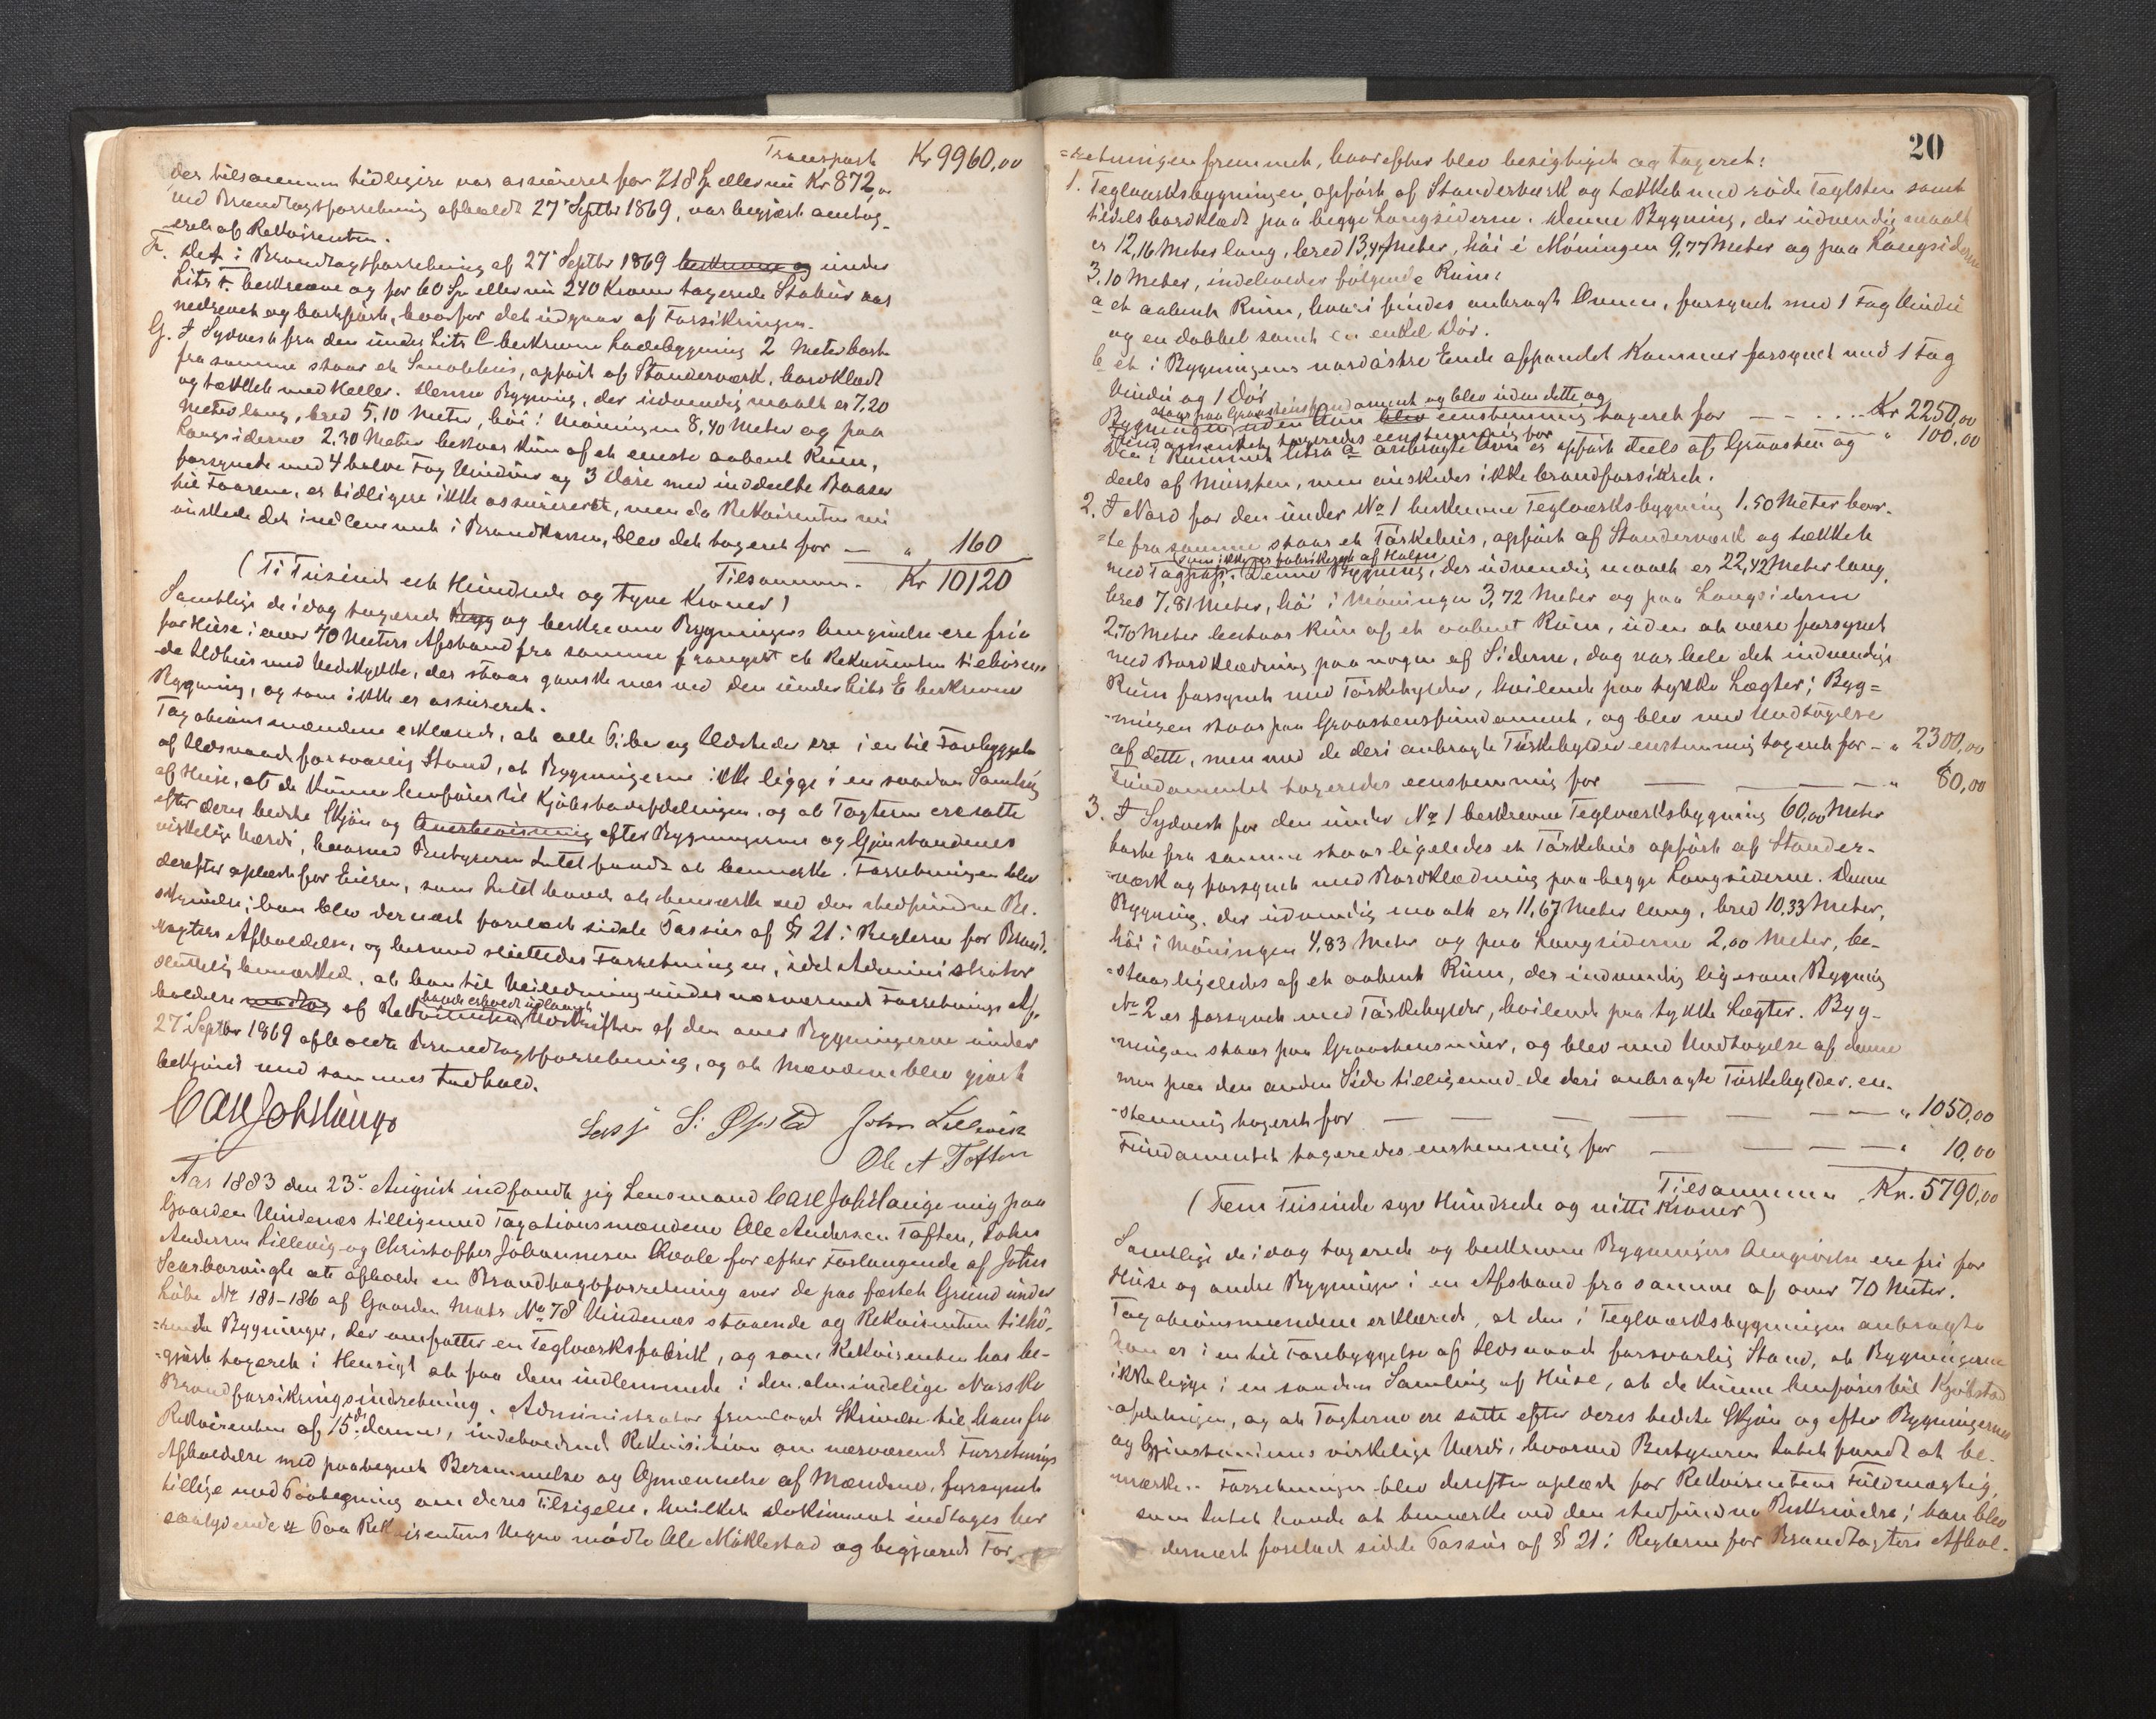 Transport Kr 9960,00
der tilsammen tidligere var assureret for 218 Sp eller nu Kr 872,00
ved Brandtaxtforretning afholdt 27de Septbr 1869, var begjært omtax-
eret af Rekvirenten.
F. Det i Brandtaxtforretning af 27de Septbr 1869 beskrevne og under
Litr F. beskrevne og for 60 Sp eller nu 240 Kroner taxerede Stabur var
nedrevet og bortført, hvorfor det udgaar af Forsikringen.
G. I Sydvest fra den under Litr C beskrevne Ladebygning 2 Meter bort
fra samme staar et Smalehus, opført af Standerværk, bordklædt
og tækket med Heller. Denne Bygning, der udvendig maalt er 7,20
Meter lang, bred 5,10 Meter, høi i Møningen 8,40 Meter og paa
Langsiderne 2,30 Meter bestaar kun af et eneste aabent Rum,
forsynet med 4 halve Fag Vinduer og 3 Døre med inddeelte Baaser
til Faarene, er tidligere ikke assureret, men da Rekvirenten nu
ønskede det indlemmet i Brandkassen, blev det taxeret for — " 160
Tilsammen. Kr 10120
(Ti Tusinde et Hundrede og tyve Kroner)
Samtlige de idag taxerede Bygg og beskrevne Bygningers Omgivelse ere frie
for Huse i over 70 Meters Afstand fra samme fraregnet et Rekvirenten tilhøren-
de Ildhus med Vedskykke, der staar ganske nær ved den under Litr E beskrevne
Bygning, og som ikke er assureret.
Taxationsmændene erklærede, at alle Piber og Ildsteder ere i en til Forebyggelse
af Ildsvaade forsvarlig Stand, at Bygningerne ikke ligge i en saadan Samling
af Huse, at de kunne henføres til Kjøbstadafdelingen, og at Taxterne ere satte
efter deres bedste Skjøn og Overbevisning efter Bygningernes og Gjenstandenes
virkelige Værdi, hvorved Bestyreren Intet fandt at bemærke. Forretningen blev
derefter oplæst for Eieren, som Intet havde at bemærke ved den stedfundne Be-
skrivelse; han blev dernæst forelæst sidste Passus af § 21 i Reglerne for Brand-
taxters Afholdelse, og hermed sluttedes Forretningen, idet Administrator
sluttelig bemærked, at han til Veiledning under nærværende Forretnings Af-
holdelse modtog af Rekvirenten havde erholdt udlaant Udskriften af den over Bygningerne under
27de Septbr 1869 afholdte Brandtaxtforretning, og at Mændene blev gjort
bekjendt med sammes Indhold.
Carl Joh Lange
Lasse S. Opstad John Lillevik
Ole A Toften
Aar 1883 den 23de August indfandt jeg Lensmand Carl Joh Lange mig paa
Gaarden Vindenæs tilligemed Taxationsmændene Ole Andersen Toften, John
Andersen Lillevig og Christoffer Johannesen Qvale for efter Forlangende af John
Scarborough at afholde en Brandtaxtforretning over de paa fæstet Grund under
Løbe Nr 181-186 af Gaarden Matr No 78 Vindenæs staaende og Rekvirenten tilhø-
rende Bygninger, der omfatter en Teglværksfabrik, og som Rekvirenten har be-
gjært taxeret i Hensigt at faa dem indlemmede i den almindelige Norske
Brandforsikringsindretning. Administrator fremlagde Skrivelse til ham fra
Rekvirenten af 15de dennes, indeholdende Rekvisition om nærværende Forretnings
Afholdelse med paategnet Berammelse og Opnævnelse af Mændene, forsynet
tillige med Paategning om deres Tilsigelse, hvilket Dokument indtages her
saalydende # Paa Rekvirentens Vegne mødte Ole Møklestad og begjærede For-
20
=retningen fremmet, hvorefter blev besigtiget og taxeret:
1. Teglværksbygningen, opført af Standerværk og tækket med røde Taglsten samt
tildels bordklædt paa begge Langsiderne. Denne Bygning, der udvendig maalt
er 12,16 Meter lang, bred 13,47 Meter, høi i Møningen 9,77 Meter og paa Langsiderne
3,10 Meter, indeholder følgende Rum:
a et aabent Rum, hvori findes anbragt Ovnen, forsynet med 1 Fag Vindu
og en dobbel samt en enkel Dør.
b et i Bygningens nordøstre Ende afpanelet Kammer forsynet med 1 Fag
Vindu og 1 Dør
staar paa Graastensfundament og blev uden dette og
Bygningen uden Ovn blev eenstemmig taxeret for — — . . . . Kr 2250,00
Fundamentet taxeredes eenstemmig for " 100,00
Den i Rummet litra a anbragte Ovn er opført deels af Graasten og
deels af Mursten, men ønskedes ikke brandforsikret.
2. I Nord for den under No 1 beskrevne Teglværksbygning 1.50 Meter bor-
te fra samme staar et Tørkehus, opført af Standerværk og tækket
som ikke er fabrikeret af Halm
med Tagpap. Denne Bygning, der udvendig maalt er 22,42 Meter lang,
bred 7,81 Meter, høi i Møningen 3,72 Meter og paa Langsiderne
2,70 Meter bestaar kun af et aabent Rum, uden at være forsynet
med Bordklædning paa nogen af Siderne, dog var hele det indvendige
Rum forsynet med Tørkehylder, hvilende paa tykke Lægter; Byg=
-ningen staar paa Graastensfundament, og blev med Undtagelse
af dette, men med de deri anbragte Tørkehylder enstemmig taxeret for - " 2300,00
Fundamentet taxeredes eenstemmig for — — — " 80,00
3. I Sydvest for den under No 1 beskrevne Teglværksbygning 60,00 Meter
borte fra samme staar ligeledes et Tørkehus opført af Stander-
-værk og forsynet med Bordklædning paa begge Langsiderne. Denne
Bygning, der udvendig maalt er 11,67 Meter lang, bred 10,33 Meter,
høi i Møningen 4,83 Meter og paa Langsiderne 2,00 Meter, be-
-staar ligeledes af et aabent Rum, der indvendig ligesom Bygning
No 2 er forsynet med Tørkehylder, hvilende paa tykke Lægter. Byg-
-ningen staar paa Graastensmur, og blev med Undtagelse af denne
men paa den anden Side tilligemed de deri anbragte Tørkehylder en-
-stemmig taxeret for — — — — — " 1050,00
Fundamentet taxeredes enstemmig for — — — " 10,00
Tilsammen Kr. 5790,00
(Fem Tusinde syv Hundrede og nitti Kroner)
Samtlige de idag taxerede og beskrevne Bygningers Omgivelse ere fri for
Huse og andre Bygninger i en Afstand fra samme af over 70 Meter.
Taxationsmændene erklærede, at den i Teglværksbygningen anbragte
Ovn er i en til Forebyggelse af Ildsvaade forsvarlig Stand, at Bygningerne
ikke ligge i en saadan Samling af Huse, at de kunne henføres til Kjøbstad
-afdelingen, og at Taxterne ere satte efter deres bedste Skjøn og efter Bygningernes
og Gjenstandenes virkelige Værdi, hvorved Bestyreren Intet fandt at be-
mærke. Forretningen blev derefter oplæst for Rekvirentens Fuldmægtig,
som Intet havde at bemærke ved den stedfundne Beskrivelse; han blev
dernæst forelæst sidste Passus af § 21 i Reglerne for Brandtaxters Afhol-